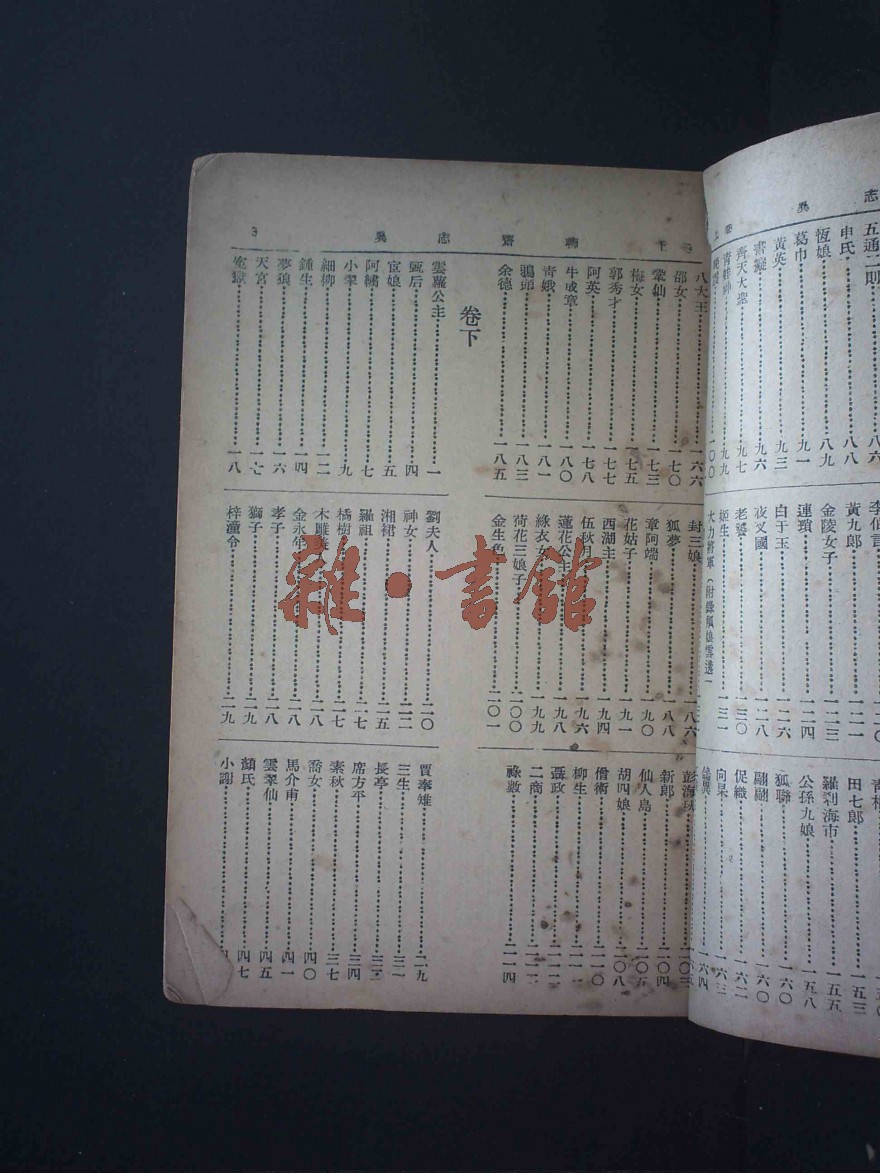 志 異
五通二則
申氏 八八
恆娘 八九
葛巾 九一
黃英 九三
書癡 九六
齊天大聖 九七
青蛙神 九九
一〇〇
李伯言
黃九郎
金陵女子
連瑣 一二四
白于玉 一二六
夜叉國 一二八
老饕 一三〇
姬生 一三一
大力將軍
田七郎 一五三
羅剎海市 一五五
公孫九娘 一五八
狐聯 一六〇
翩翩 一六〇
促織 一六二
向杲 一六三
一六四
聊齋志異
3
八大王 一六六
邵女 一七〇
鞏仙 一七三
梅女 一七五
郭秀才 一七七
阿英 一七八
牛成章 一八〇
青娥 一八一
鴉頭 一八三
余德 一八五
封三娘 一八六
狐夢 一八八
章阿端 一九〇
花姑子 一九一
西湖主 一九四
伍秋月 一九六
蓮花公主 一九八
綠衣女 一九九
荷花三娘子 二〇〇
金生色 二〇一
彭海秋 二〇三
新郎 二〇四
仙人島 二〇五
胡四娘 二〇八
僧術 二一〇
柳生 二一一
聶政
二商
祿數 二一四
卷下
雲蘿公主 一
甄后 四
宦娘 五
阿繡 七
小翠 九
細柳 一二
鍾生 一四
夢狼 一六
天宮 一七
冤獄 一八
劉夫人 二〇
神女 二二
湘裙 二五
羅祖 二七
橘樹 二七
木雕美人 二八
金永年 二八
孝子 二九
獅子 二九
梓潼令 二九
賈奉雉 二九
三生 三二
長亭
席方平 三四
素秋 三七
喬女 四〇
馬介甫 四一
雲翠仙 四五
顏氏 四七
小謝
雜·書館